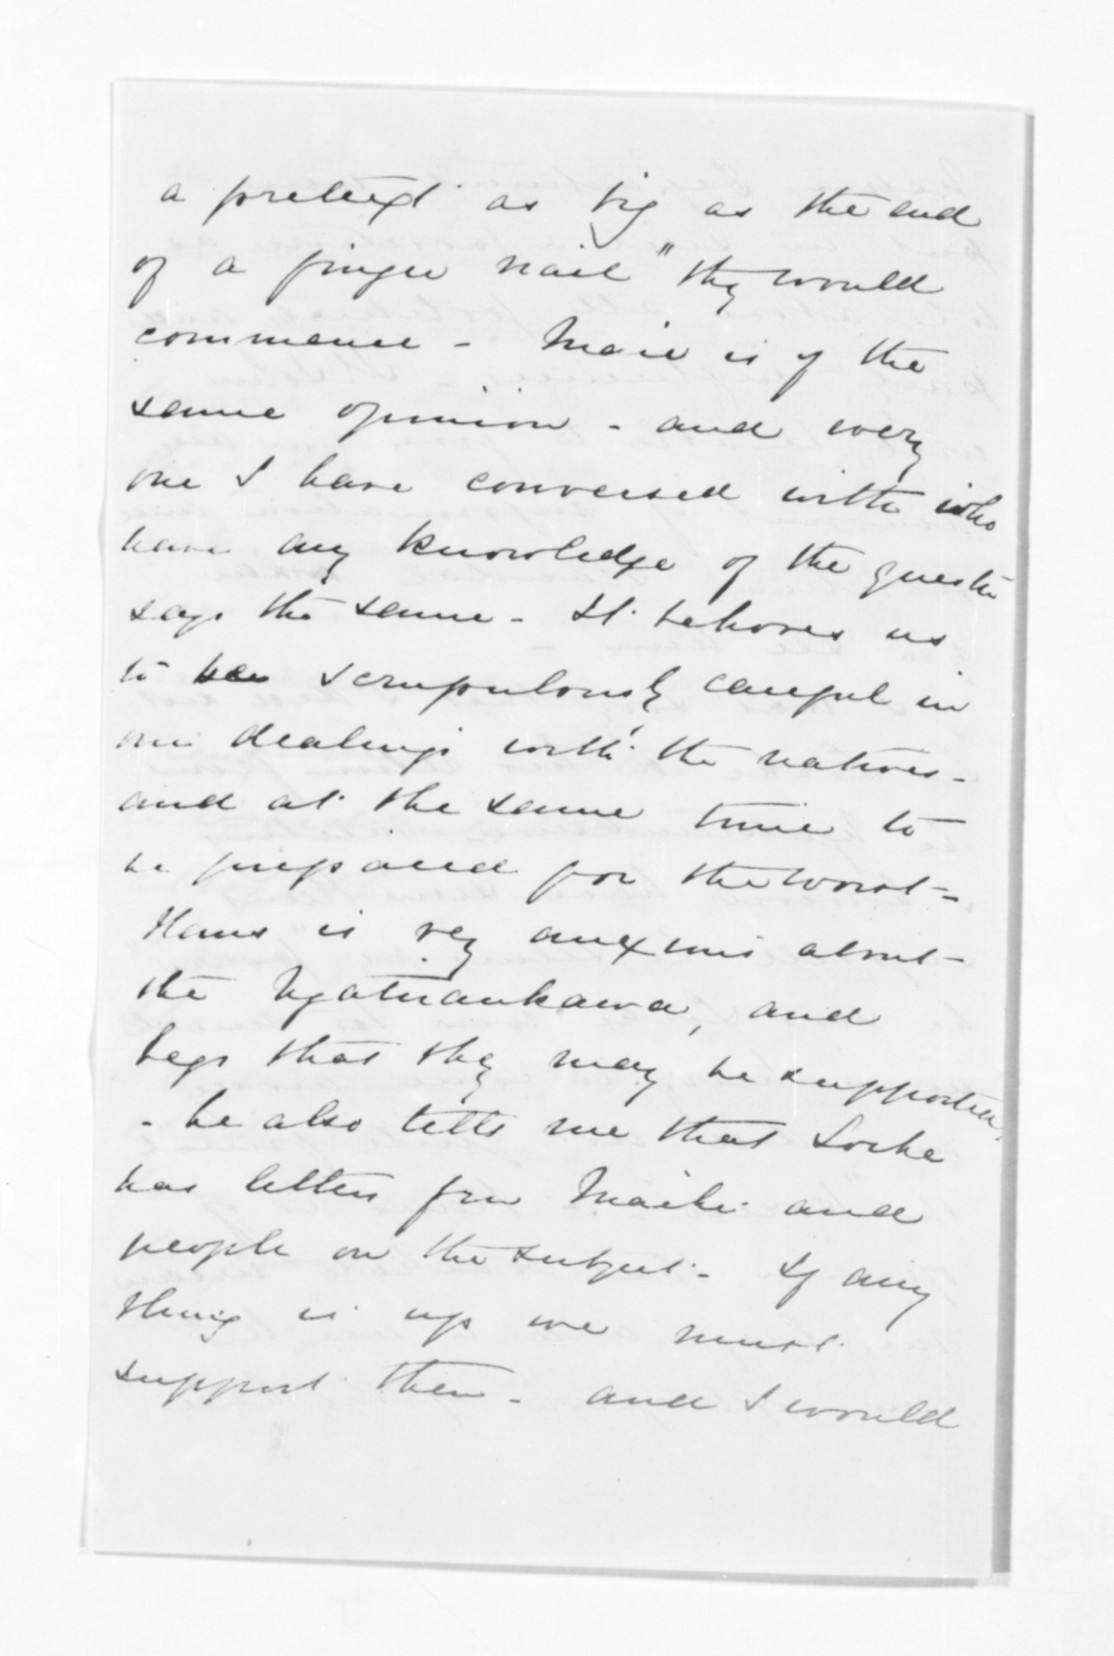 a pretext as big as the end
of a finger nail" they would
commence - Mair is of the
same opinion - and every
one I have conversed with who
have any knowledge of the questn
says the same - It behoves us
to be scrupulously careful in
our dealings with the natives -
and at the same time to
be prepared for the worst -
Hans is very anxious about
the Ngatuaukawa, and
begs that they may be supported,
- he also tells me that Locke
has letters from Maihi and
people on the subject - If any
thing is up we must
support them - and I would